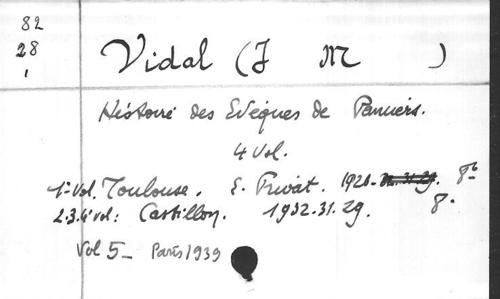 82
28
1
Vidal (J M )
Histoire des Evêques de Pamiers.
4 Vol.
1er Vol. Toulouse. E. Privat. 1926. 8º
2.3.4e vol: Castillon. 1932.31.29. 8º
Vol 5 _ Paris 1939